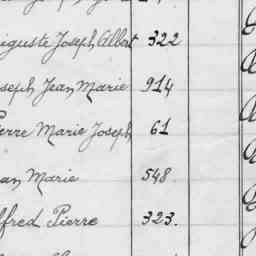 uguste Joseph Albert 322
seph Jean Marie 914
ierre Marie Joseph 61
an Marie 548
lfred Pierre 323.